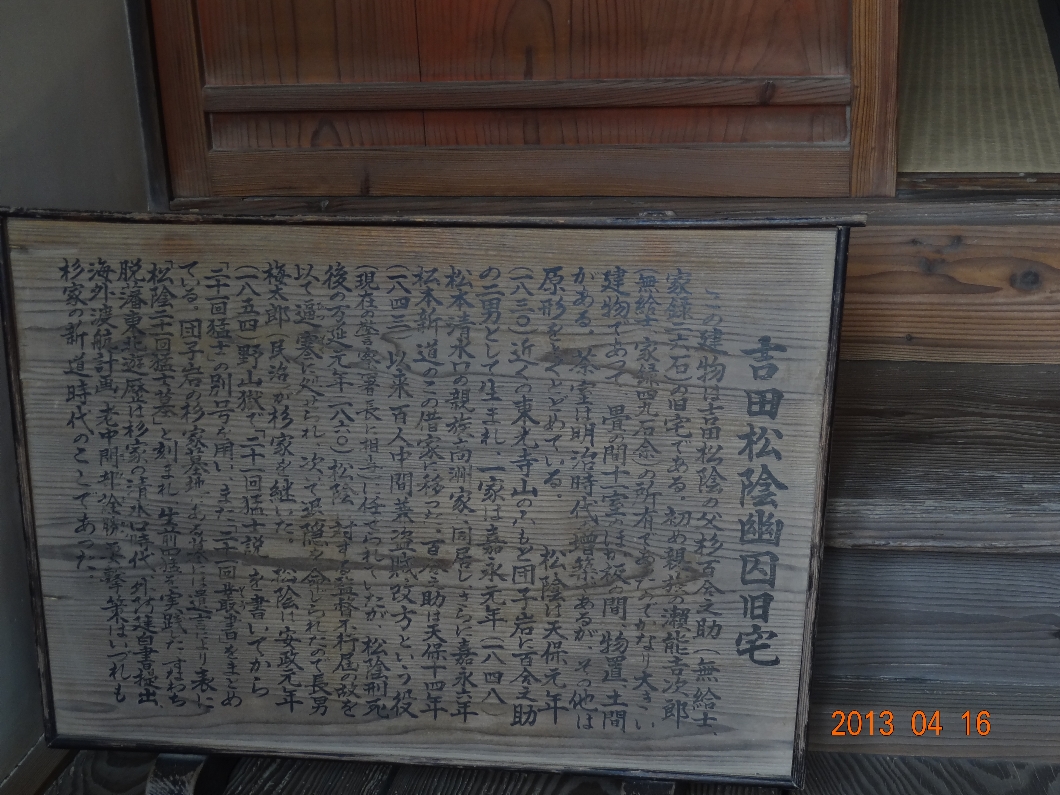 吉田松陰幽囚旧宅
この建物は吉田松陰の父杉百合之助（無給士、
家禄二六石）の旧宅である。初め親族の瀬能吉次郎
（無給士、家禄四九石余）の所有であったみてかなり大きい
建物であって、畳の間十一室のほか板の間、物置、土間
がある。茶室は明治時代の増築であるが、その他は
原形をよくとどめている。 松陰は天保元年
（一八三〇）近くの東光寺山のふもと団子岩に百合之助
の二男として生まれ、一家は嘉永元年（一八四八）
松本清水口の親族高洲家へ同居し、さらに嘉永六年
松本新道のこの借家に移った。百合之助は天保十四年
（一八四三）以来百人中間兼盗賊改方という役
（現在の警察署長に相当）に任ぜられていたが、松陰刑死
後の万延元年（一八六〇）松陰に対する監督不行届の故を
以て逼塞に処せられ、次で退隠を命じられたので長男
梅太郎（民治）が杉家を継いだ。 松陰は安政元年
（一八五四）野山獄で「二十一回猛士説」を書いてから
「二十一回猛士」の別号を用い、また「二十一回叢書」をまとめ
ている。団子岩の杉家墓地にある墓には遺言により表に
「松陰二十一回猛士墓」と刻まれ、生前四猛を実践した。すなわち
脱藩東北遊歴は杉家の清水口時代、外冦建白書提出、
海外渡航計画、老中間部詮勝要撃策はいづれも
杉家の新道時代のことであった。